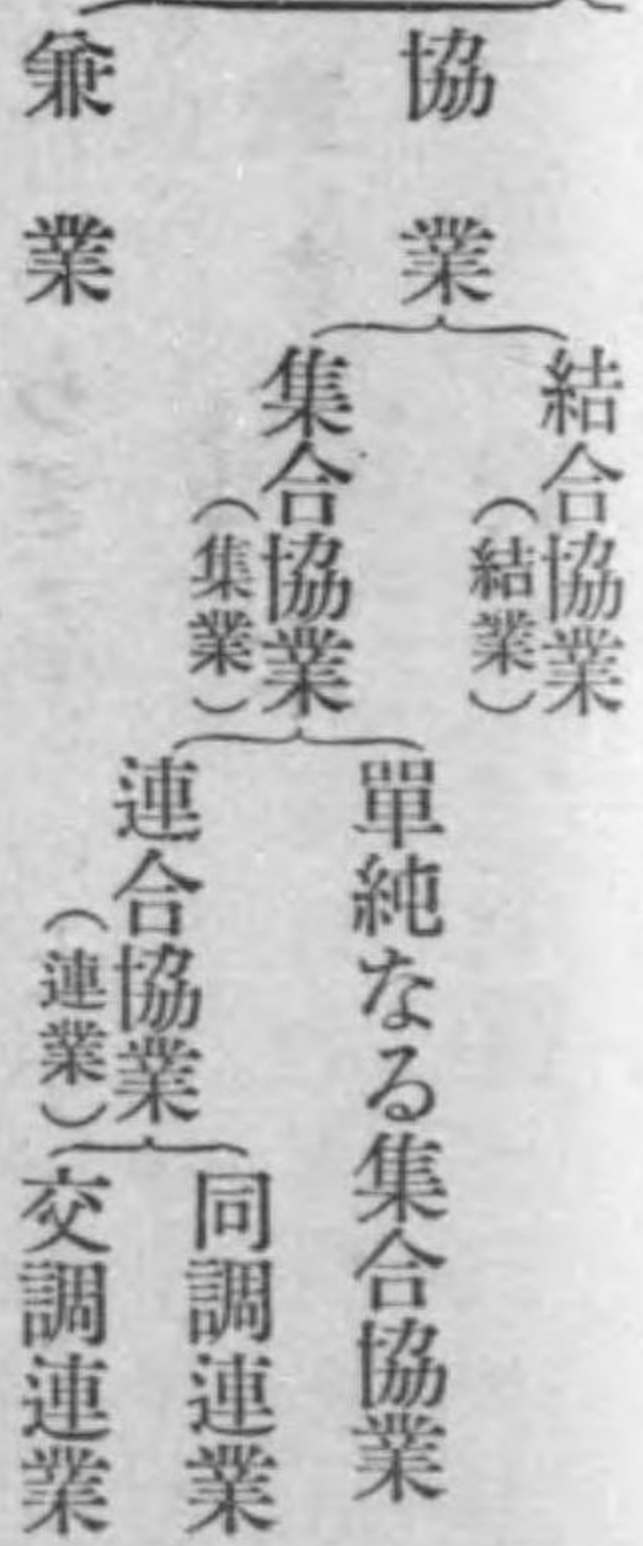 協業
結合協業
（結業）
集合協業
（集業）
單純なる集合協業
連合協業
（連業）
同調連業
交調連業
兼業